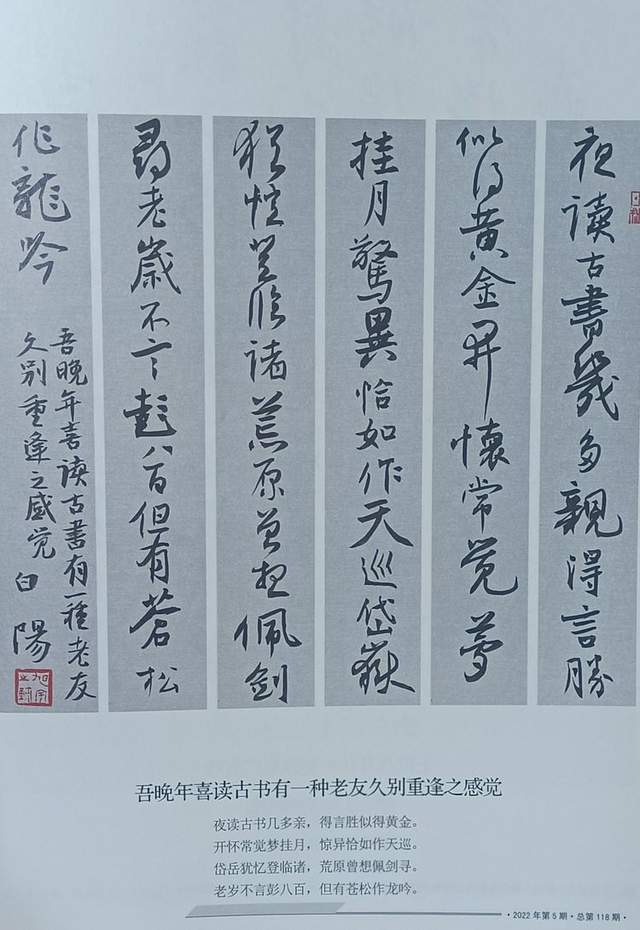 夜讀古書幾多親得言勝
似得黄金開懷常觉夢
挂月驚異恰如作天巡岱嶽
猶憶登臨諸荒原曾想佩劍
尋老歲不言彭八百但有蒼松
作龍吟
吾晚年喜读古書有一種老友
久别重逢之感觉 白陽
吾晚年喜读古书有一种老友久别重逢之感觉
夜读古书几多亲，得言胜似得黄金。
开怀常觉梦挂月，惊异恰如作天巡。
岱岳犹忆登临诸，荒原曾想佩剑寻。
老岁不言彭八百，但有苍松作龙吟。
·2022年第5期·总第118期·